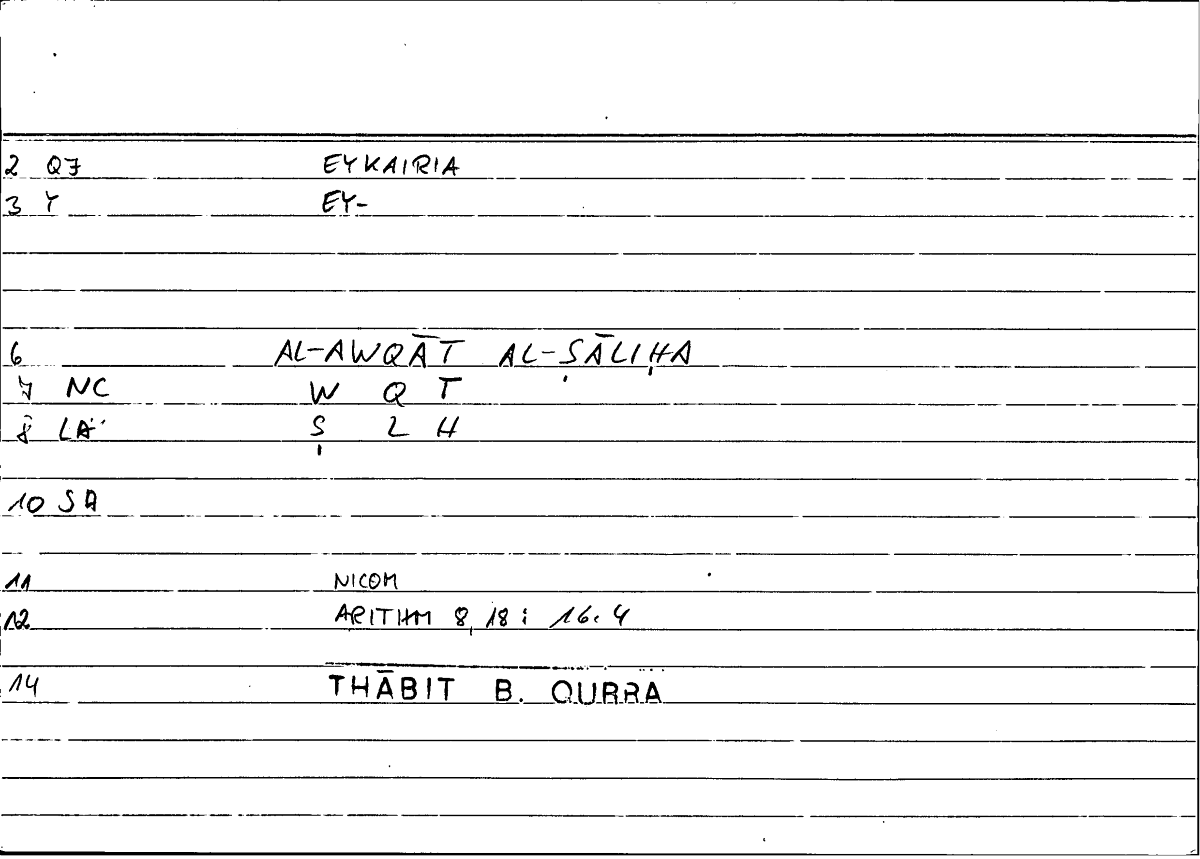 2 QJ EYKAIRIA
3 Y EY-
6 AL-AWQĀT AL-ṢĀLIḤA
7 NC W Q T
8 LA Ṣ L H
10 SA
11 NICOM
12 ARITHM 8,18 : 16.4
14 THĀBIT B. QURRA